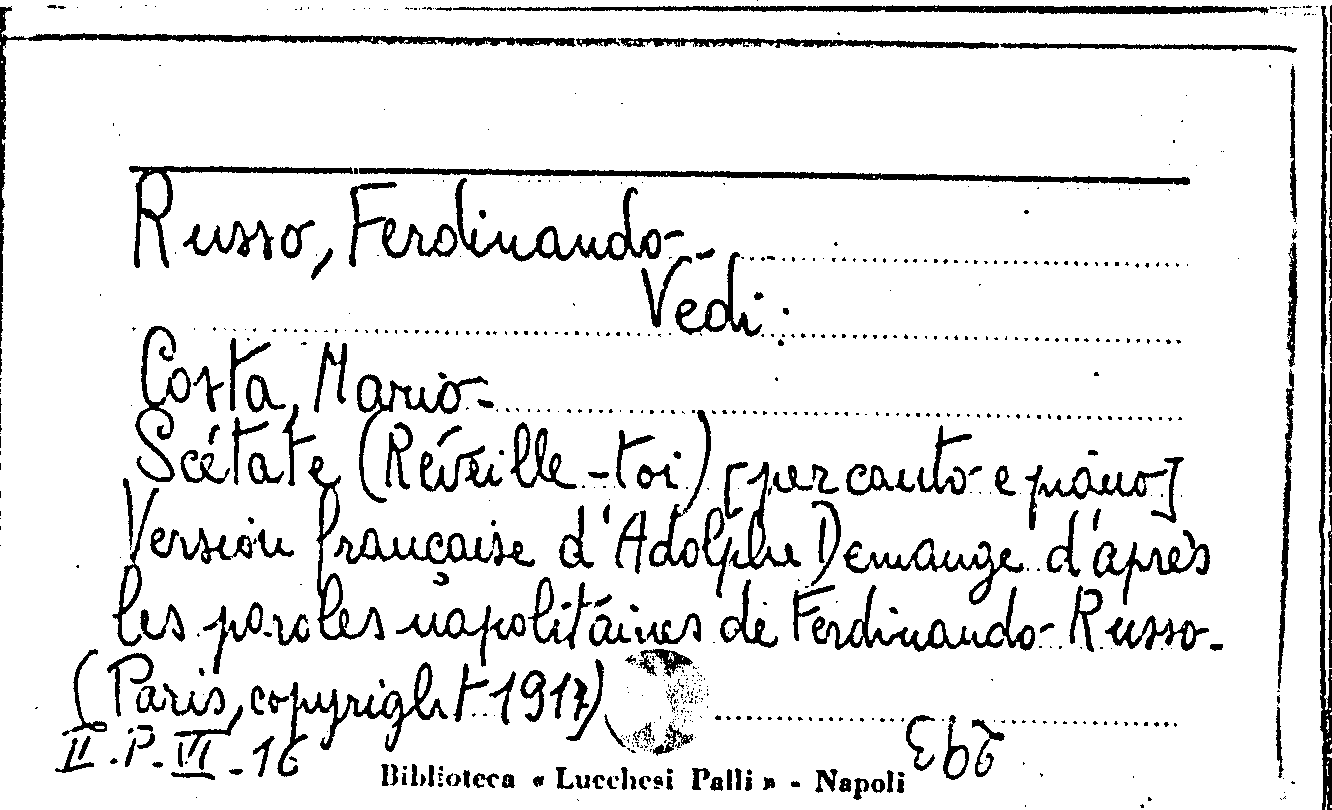 Russo, Ferdinando -
Vedi:
Costa, Mario -
Scétate (Réveille-toi) [per canto e piano]
Version française d'Adolphe Demange d'après
les paroles napolitaines de Ferdinando Russo -
(Paris, copyright 1917)
II.P.VI-16
Biblioteca « Lucchesi Palli » - Napoli